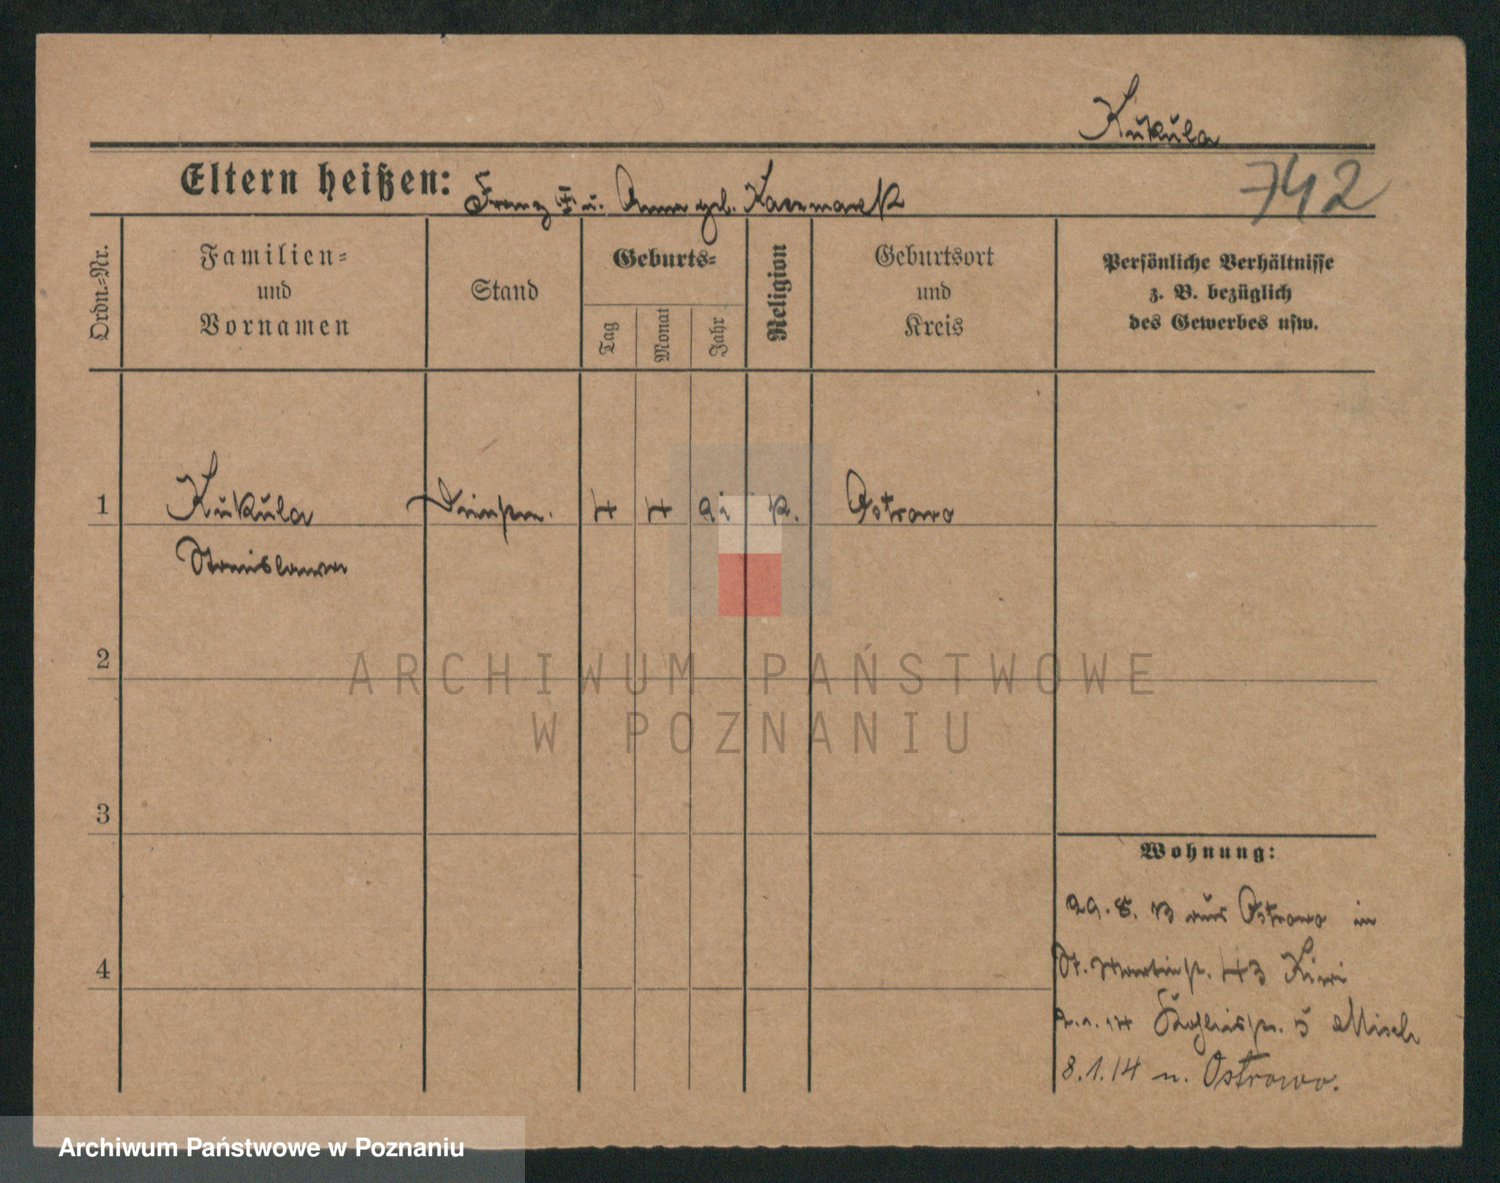 Kukula
Eltern heißen: Franz † u. Anna geb. Kaczmarek
742
Ordn.-Nr.
Familien-
und
Vornamen
Stand
Geburts-
Tag
Monat
Jahr
Religion
Geburtsort
und
Kreis
Persönliche Verhältnisse
z. B. bezüglich
des Gewerbes usw.
1 Kukula 4 4 Ostrowo
Stanislawa
2
ARCHIWUM PAŃSTWOWE
W POZNANIU
3
Wohnung:
29. 8. 13 aus Ostrowo in
4
St. Martinstr. 43
5
8.1.14 n. Ostrowo.
Archiwum Państwowe w Poznaniu